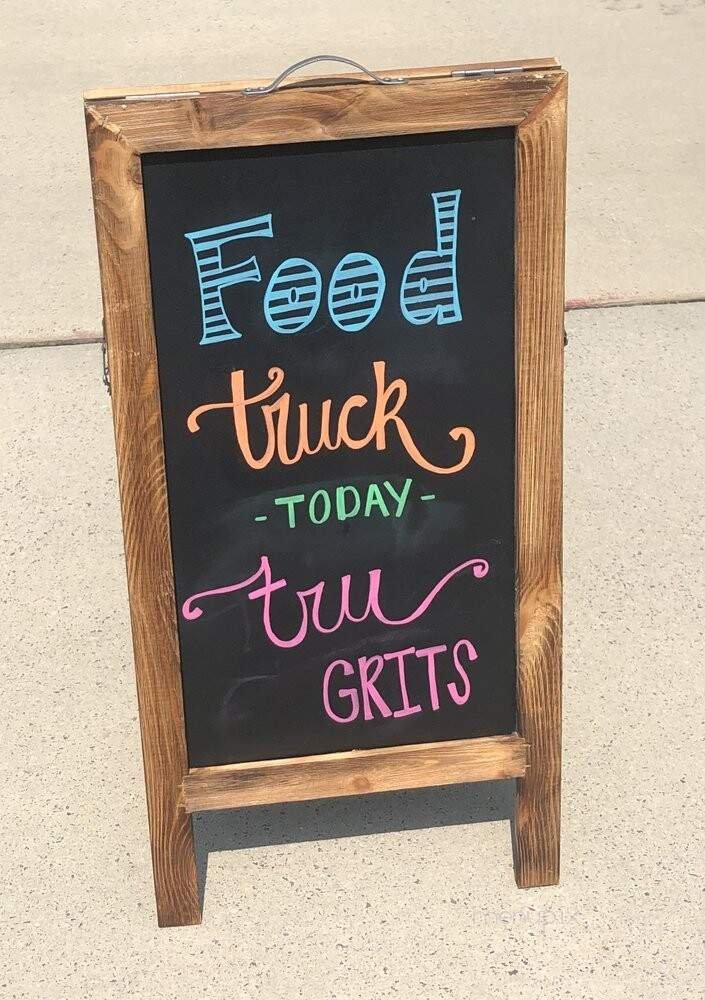 Food
truck
-TODAY-
tru
GRITS